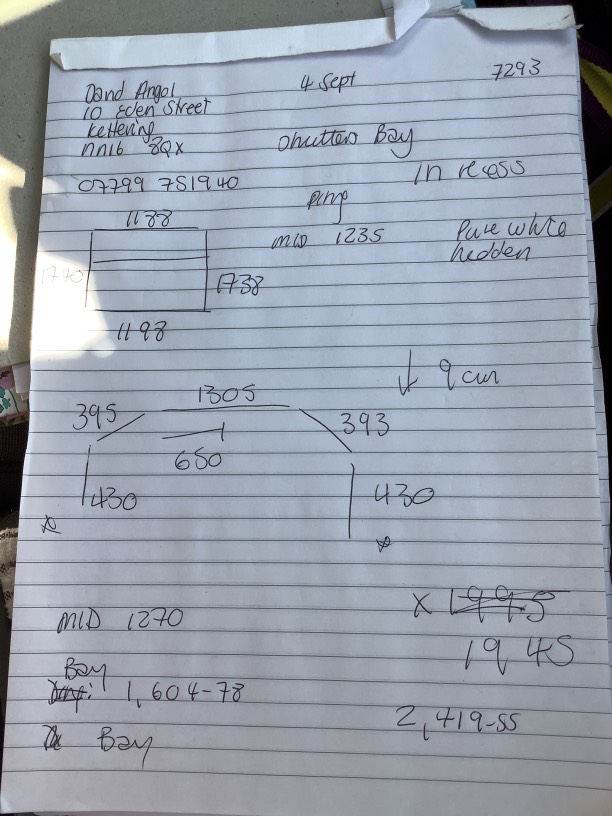 4 Sept
7293
David Angol
10 Eden Street
Kettering
NN16 8QX
07799 751940
Shutters Bay
In recess
mid 1235
Pure white
hidden
1188
1740
1738
1198
9 cm
1305
395
393
650
430
430
MID 1270
x 1995
1945
Bay
1,604-78
2,419-55
Bay